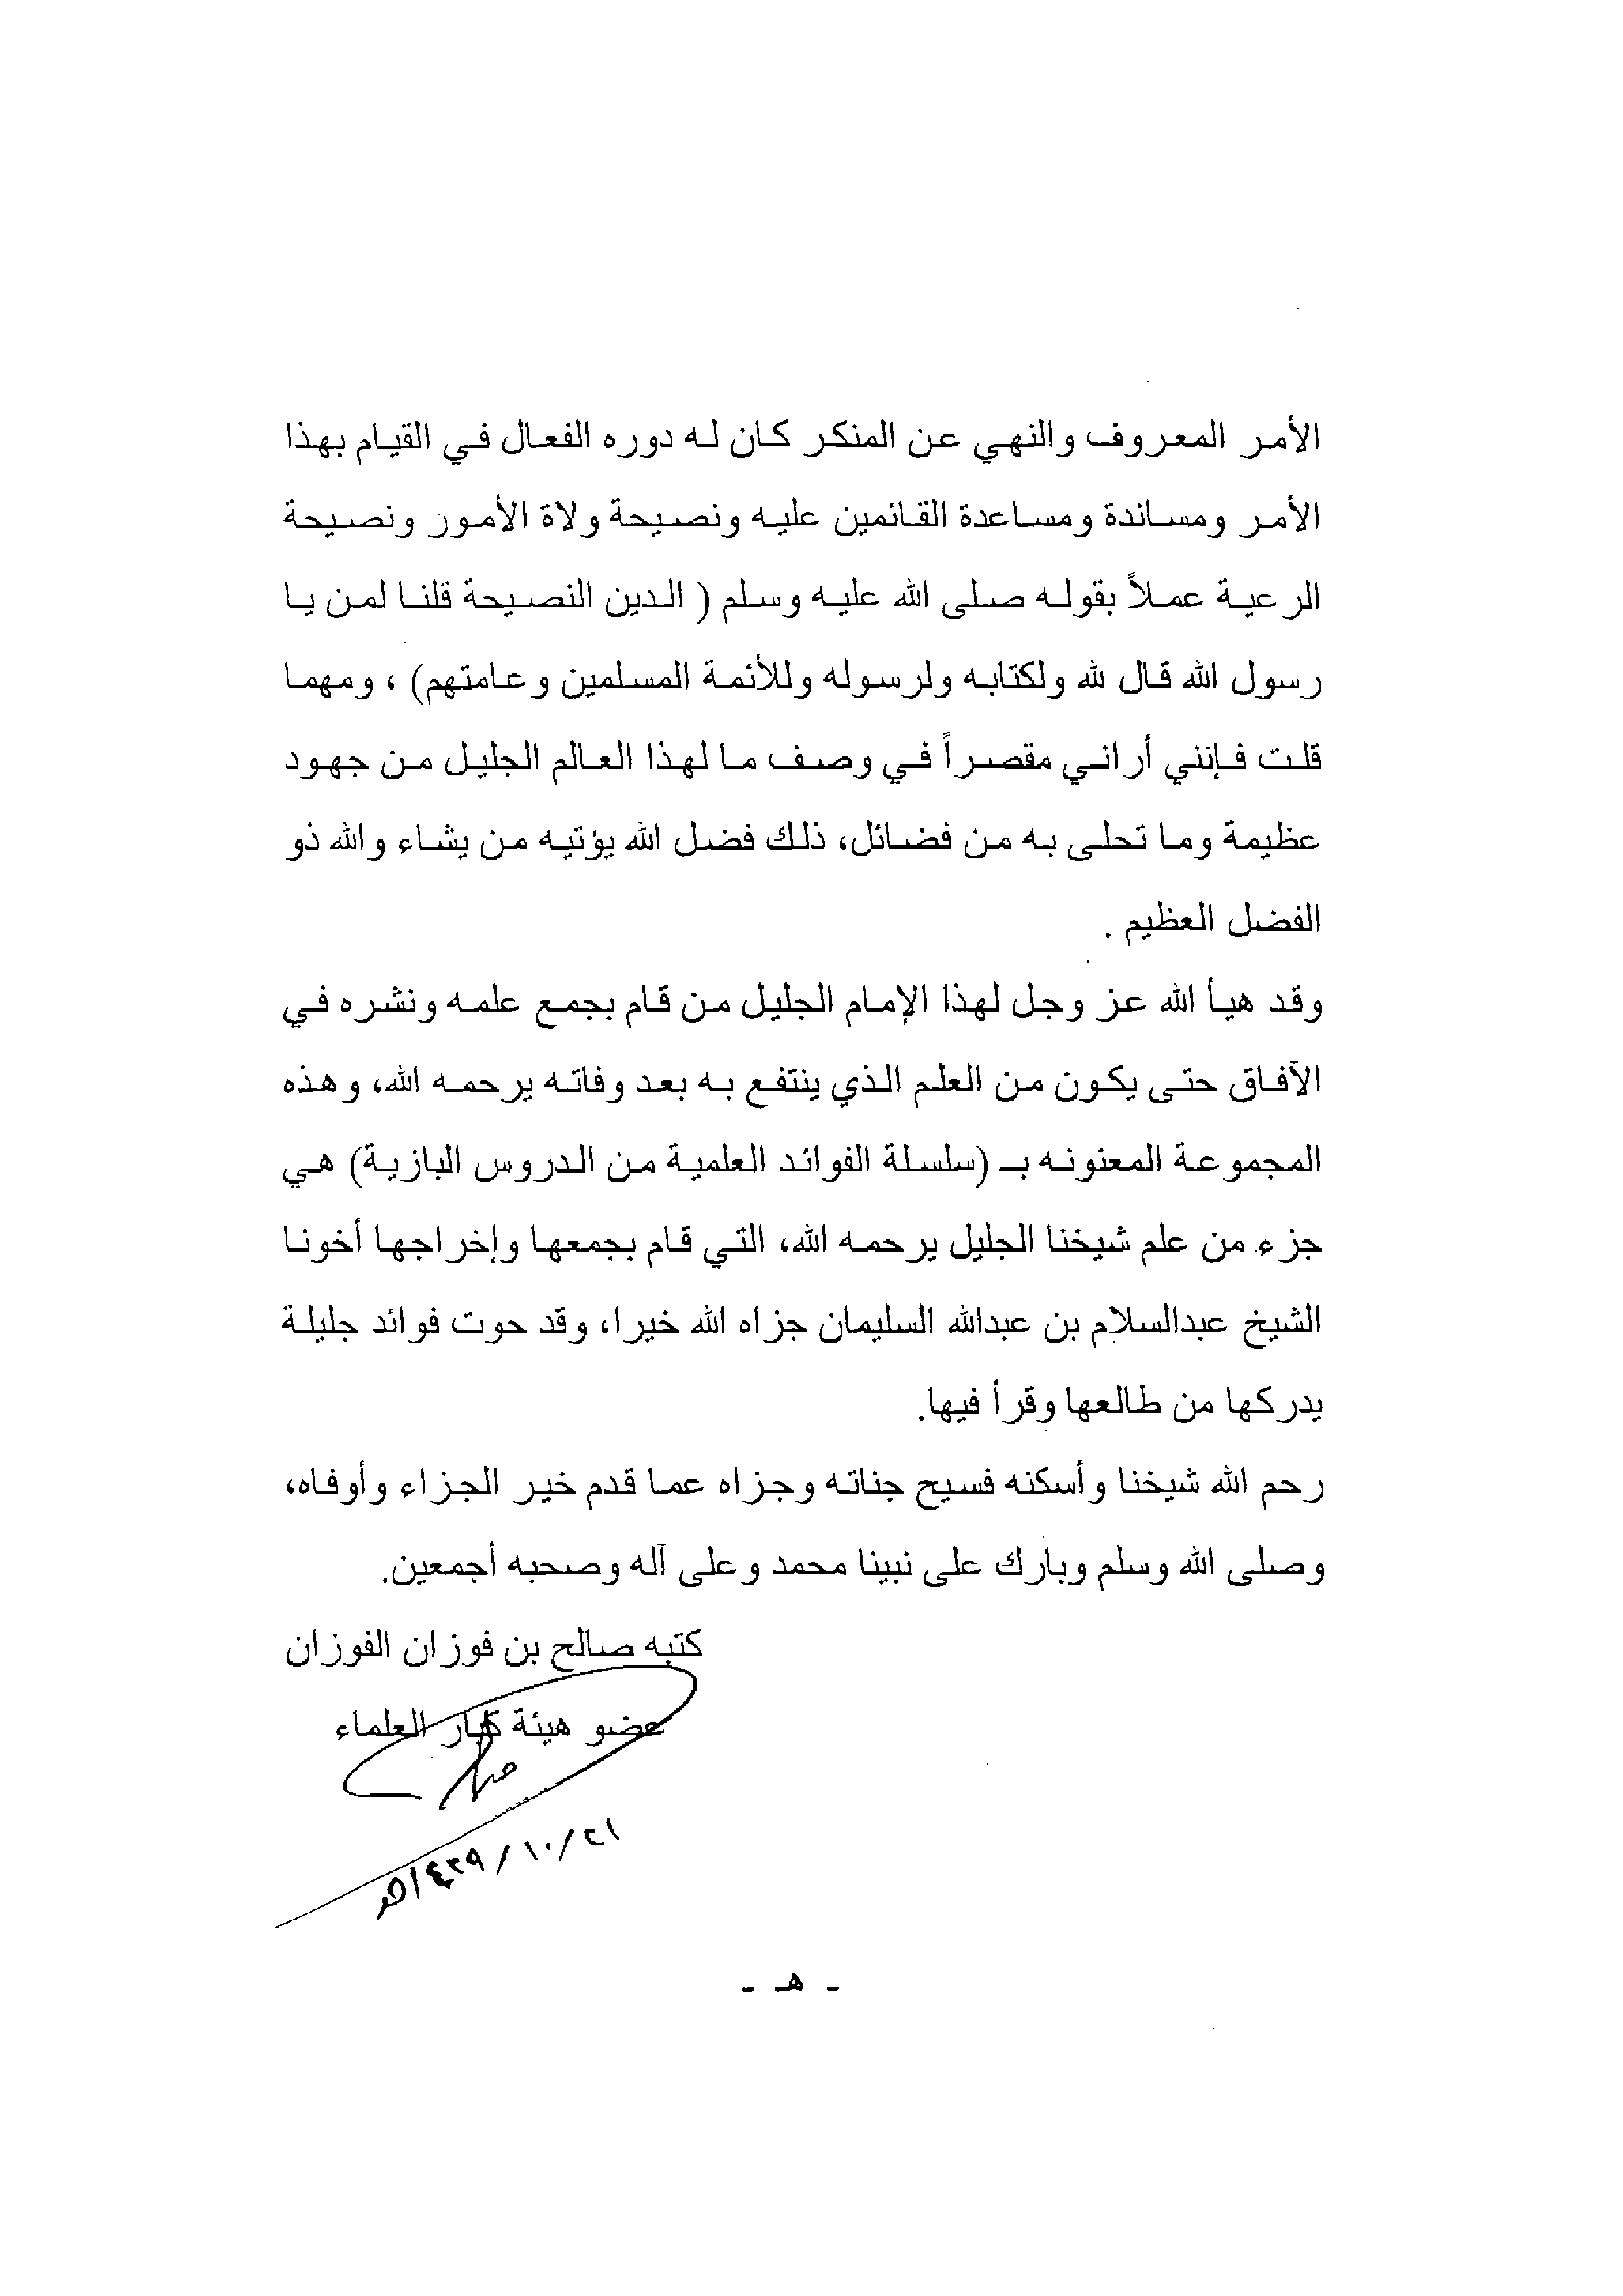 الأمر المعروف والنهي عن المنكر كان له دوره الفعال في القيام بهذا
الأمر ومساندة ومساعدة القائمين عليه ونصيحة ولاة الأمور ونصيحة
الرعية عملاً بقوله صلى الله عليه وسلم ( الدين النصيحة قلنا لمن يا
رسول الله قال لله ولكتابه ولرسوله وللأئمة المسلمين وعامتهم) ، ومهما
قلت فإنني أراني مقصراً في وصف ما لهذا العالم الجليل من جهود
عظيمة وما تحلى به من فضائل، ذلك فضل الله يؤتيه من يشاء والله ذو
الفضل العظيم .
وقد هيأ الله عز وجل لهذا الإمام الجليل من قام بجمع علمه ونشره في
الآفاق حتى يكون من العلم الذي ينتفع به بعد وفاته يرحمه الله، وهذه
المجموعة المعنونه بـ (سلسلة الفوائد العلمية من الدروس البازية) هي
جزء من علم شيخنا الجليل يرحمه الله، التي قام بجمعها وإخراجها أخونا
الشيخ عبدالسلام بن عبدالله السليمان جزاه الله خيرا، وقد حوت فوائد جليلة
يدركها من طالعها وقرأ فيها.
رحم الله شيخنا وأسكنه فسيح جناته وجزاه عما قدم خير الجزاء وأوفاه،
وصلى الله وسلم وبارك على نبينا محمد وعلى آله وصحبه أجمعين.
كتبه صالح بن فوزان الفوزان
عضو هيئة كبار العلماء
٢١/١٠/١٤٣٩هـ
- هـ -